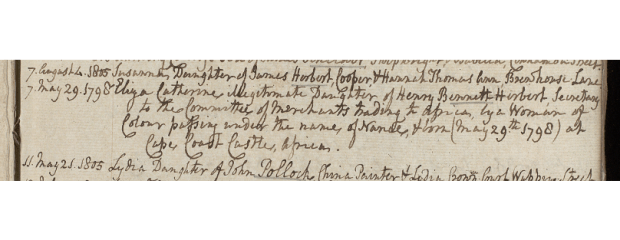 7. August 4. 1805 Susanna, Daughter of James Herbert, Cooper & Hannah Thomas Ann Brewhouse Lane
7. May 29. 1798 Eliza Catherine illegitimate Daughter of Henry Bennett Herbert Secretary
to the Committee of Merchants trading to Africa, by a Woman of
Colour passing under the name of Nance, & born (May 29th 1798) at
Cape Coast Castle, Africa.
11. May 21. 1805 Lydia Daughter of John Pollock, China Painter & Lydia Court Wapping Street